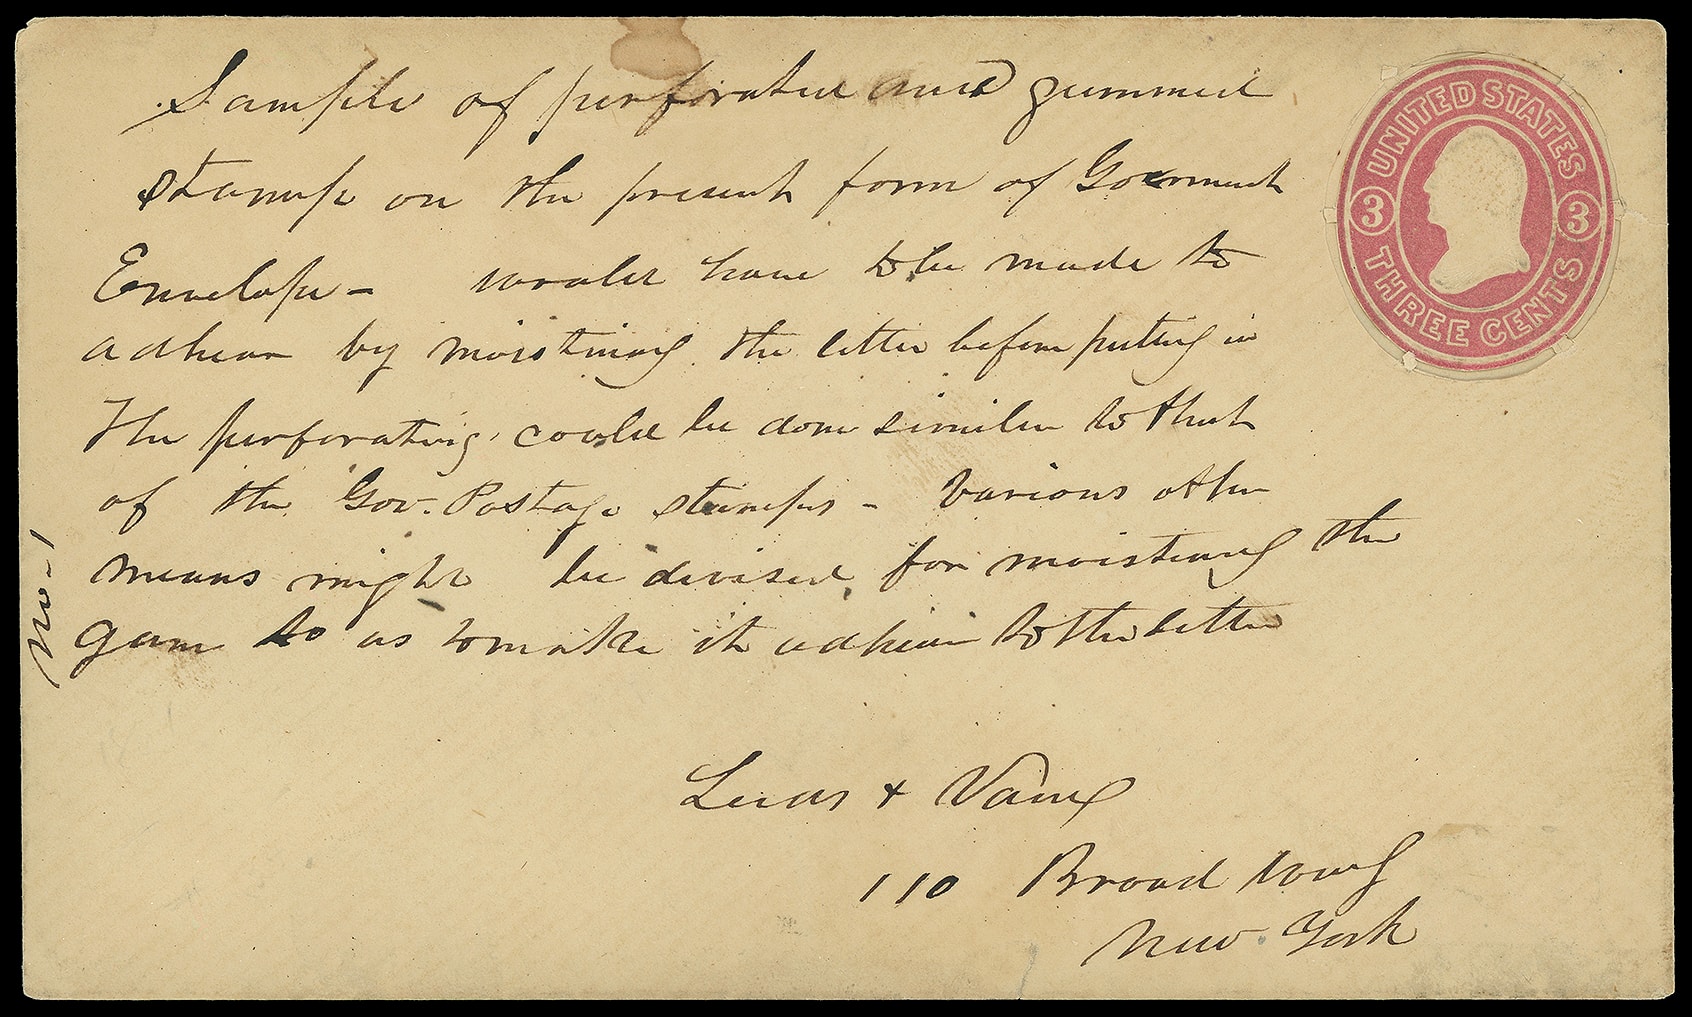 Sample of perforated and gummed
stamp on the present form of Goverment
Envelope - would have to be made to
adhear by moistining the letter before putting in
The perforating could be done similar to that
of the Gov. Postage stamps - Various other
means might be devised for moistening the
gum so as to make it adhear to the letter
No-1
&
110 Broad way
New York
UNITED STATES
3 3
THREE CENTS